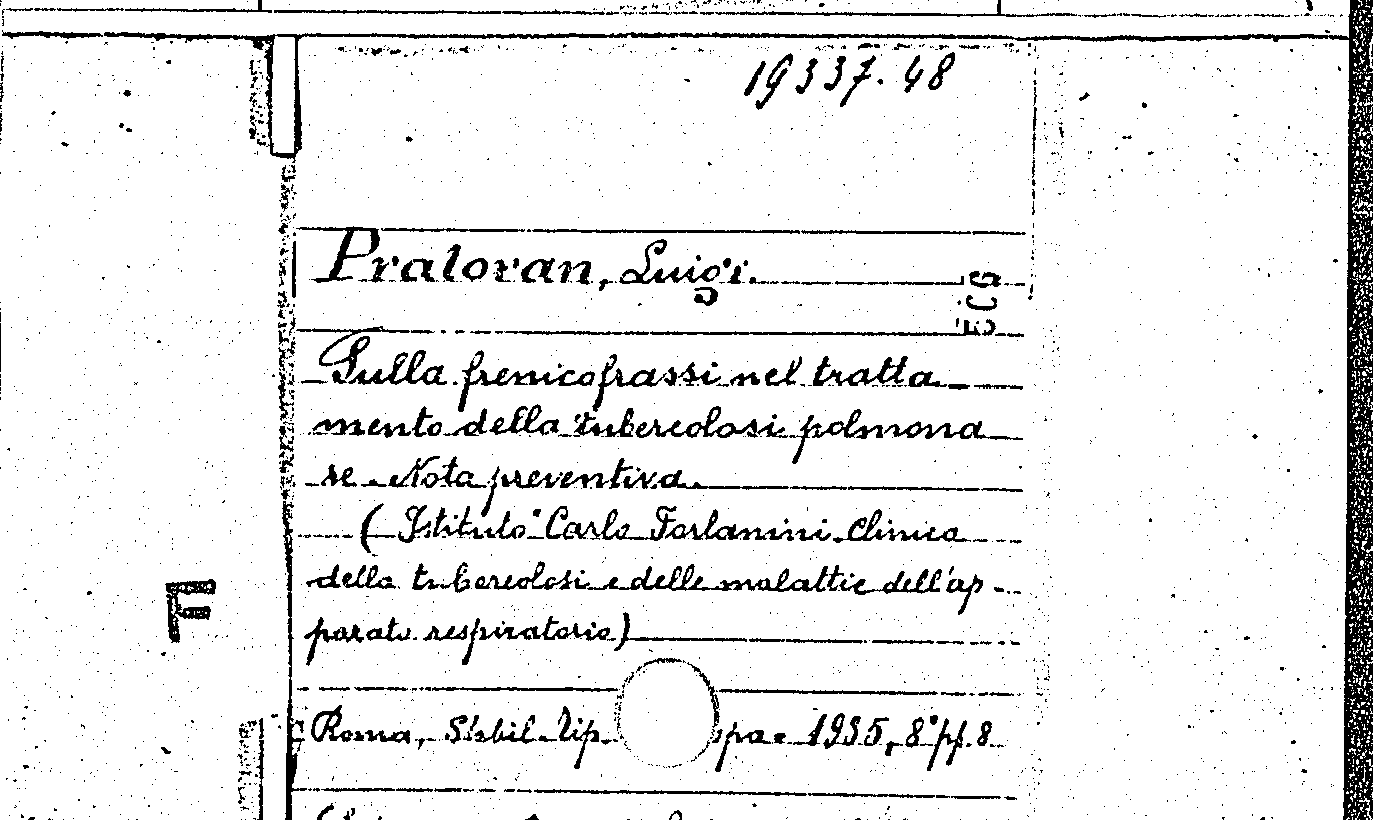 19337.48
Pratovan, Luigi.
ECG
Sulla frenicofrassi nel tratta
mento della tubercolosi polmona
re. Nota preventiva.
( Istituto "Carlo Forlanini. Clinica
della tubercolosi e delle malattie dell'ap
parato respiratorio)
F
Roma, Stabil. Tip. 1935, 8° pp. 8